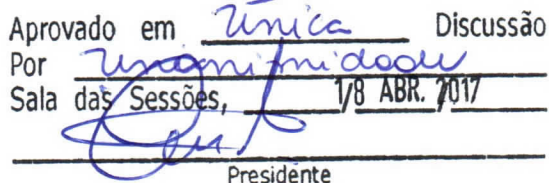 Aprovado em Única Discussão
Por Unanimidade
Sala das Sessões, 18 ABR. 2017
Presidente